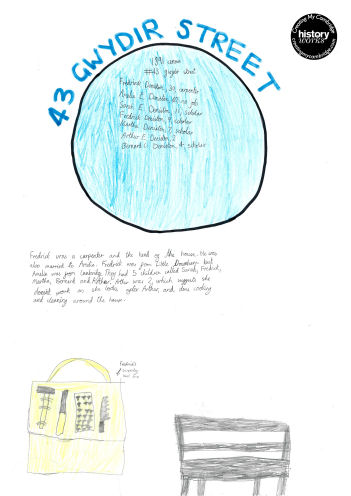 43 GWYDIR STREET
Creating My Cambridge
history
WORKS
1891 census
#43 gwydir street
Fredrick Deniston, 39, carpenter
Amelia E. Deniston, no job
Sarah E. Deniston, 11, scholar
Fredrick Deniston, 9, scholar
Martha Deniston, 7, scholar
Arthur E. Deniston, 2
Bernard C. Deniston, 4, scholar
Fredrick was a carpenter and the head of the house. He was
also married to Amelia. Fredrick was from Little but
Amelia was from Cambridge. They had 5 children called Sarah, Fredrick,
Martha, Bernard and Arthur. Arthur was 2, which suggests she
doesn't work as she looks after Arthur, and does cooking
and cleaning around the house.
Fredrick's
carpentry
tool box